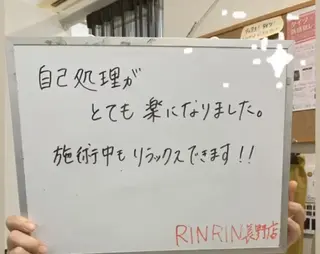 自己処理が
とても楽になりました。
施術中もリラックスできます!!
RINRIN長野店